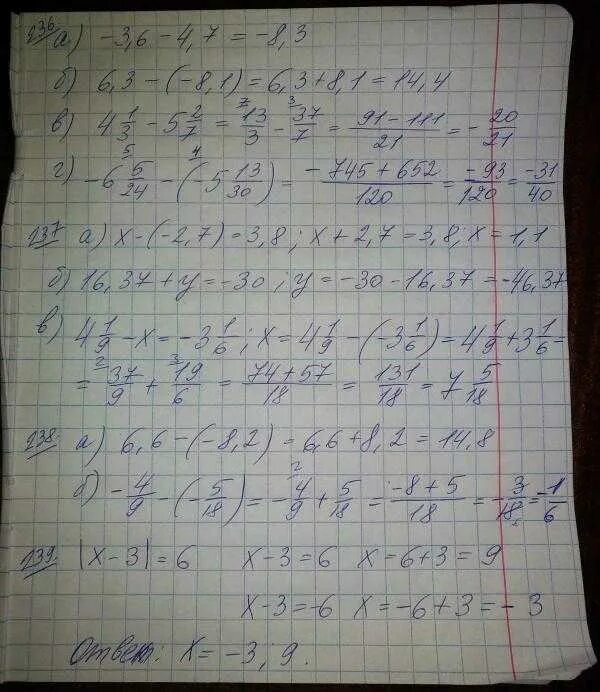 236 а) -3,6 - 4,7 = -8,3
б) 6,3 - (-8,1) = 6,3 + 8,1 = 14,4
в) 4 1/3 - 5 2/7 = 7 13/3 - 3 37/7 = (91 - 111)/21 = - 20/21
г) -6 5/24 5 - (-5 13/30 4) = (-745 + 652)/120 = -93/120 = -31/40
237 а) x - (-2,7) = 3,8 ; x + 2,7 = 3,8 ; x = 1,1
б) 16,37 + y = -30 ; y = -30 - 16,37 = -46,37
в) 4 1/9 - x = -3 1/6 ; x = 4 1/9 - (-3 1/6) = 4 1/9 + 3 1/6 =
= 2 37/9 + 3 19/6 = (74 + 57)/18 = 131/18 = 7 5/18
238 а) 6,6 - (-8,2) = 6,6 + 8,2 = 14,8
б) - 4/9 - (- 5/18) = - 2 4/9 + 5/18 = (-8 + 5)/18 = - 3/18 = -1/6
239 |x - 3| = 6 x - 3 = 6 x = 6 + 3 = 9
x - 3 = -6 x = -6 + 3 = -3
Ответ: x = -3 ; 9.